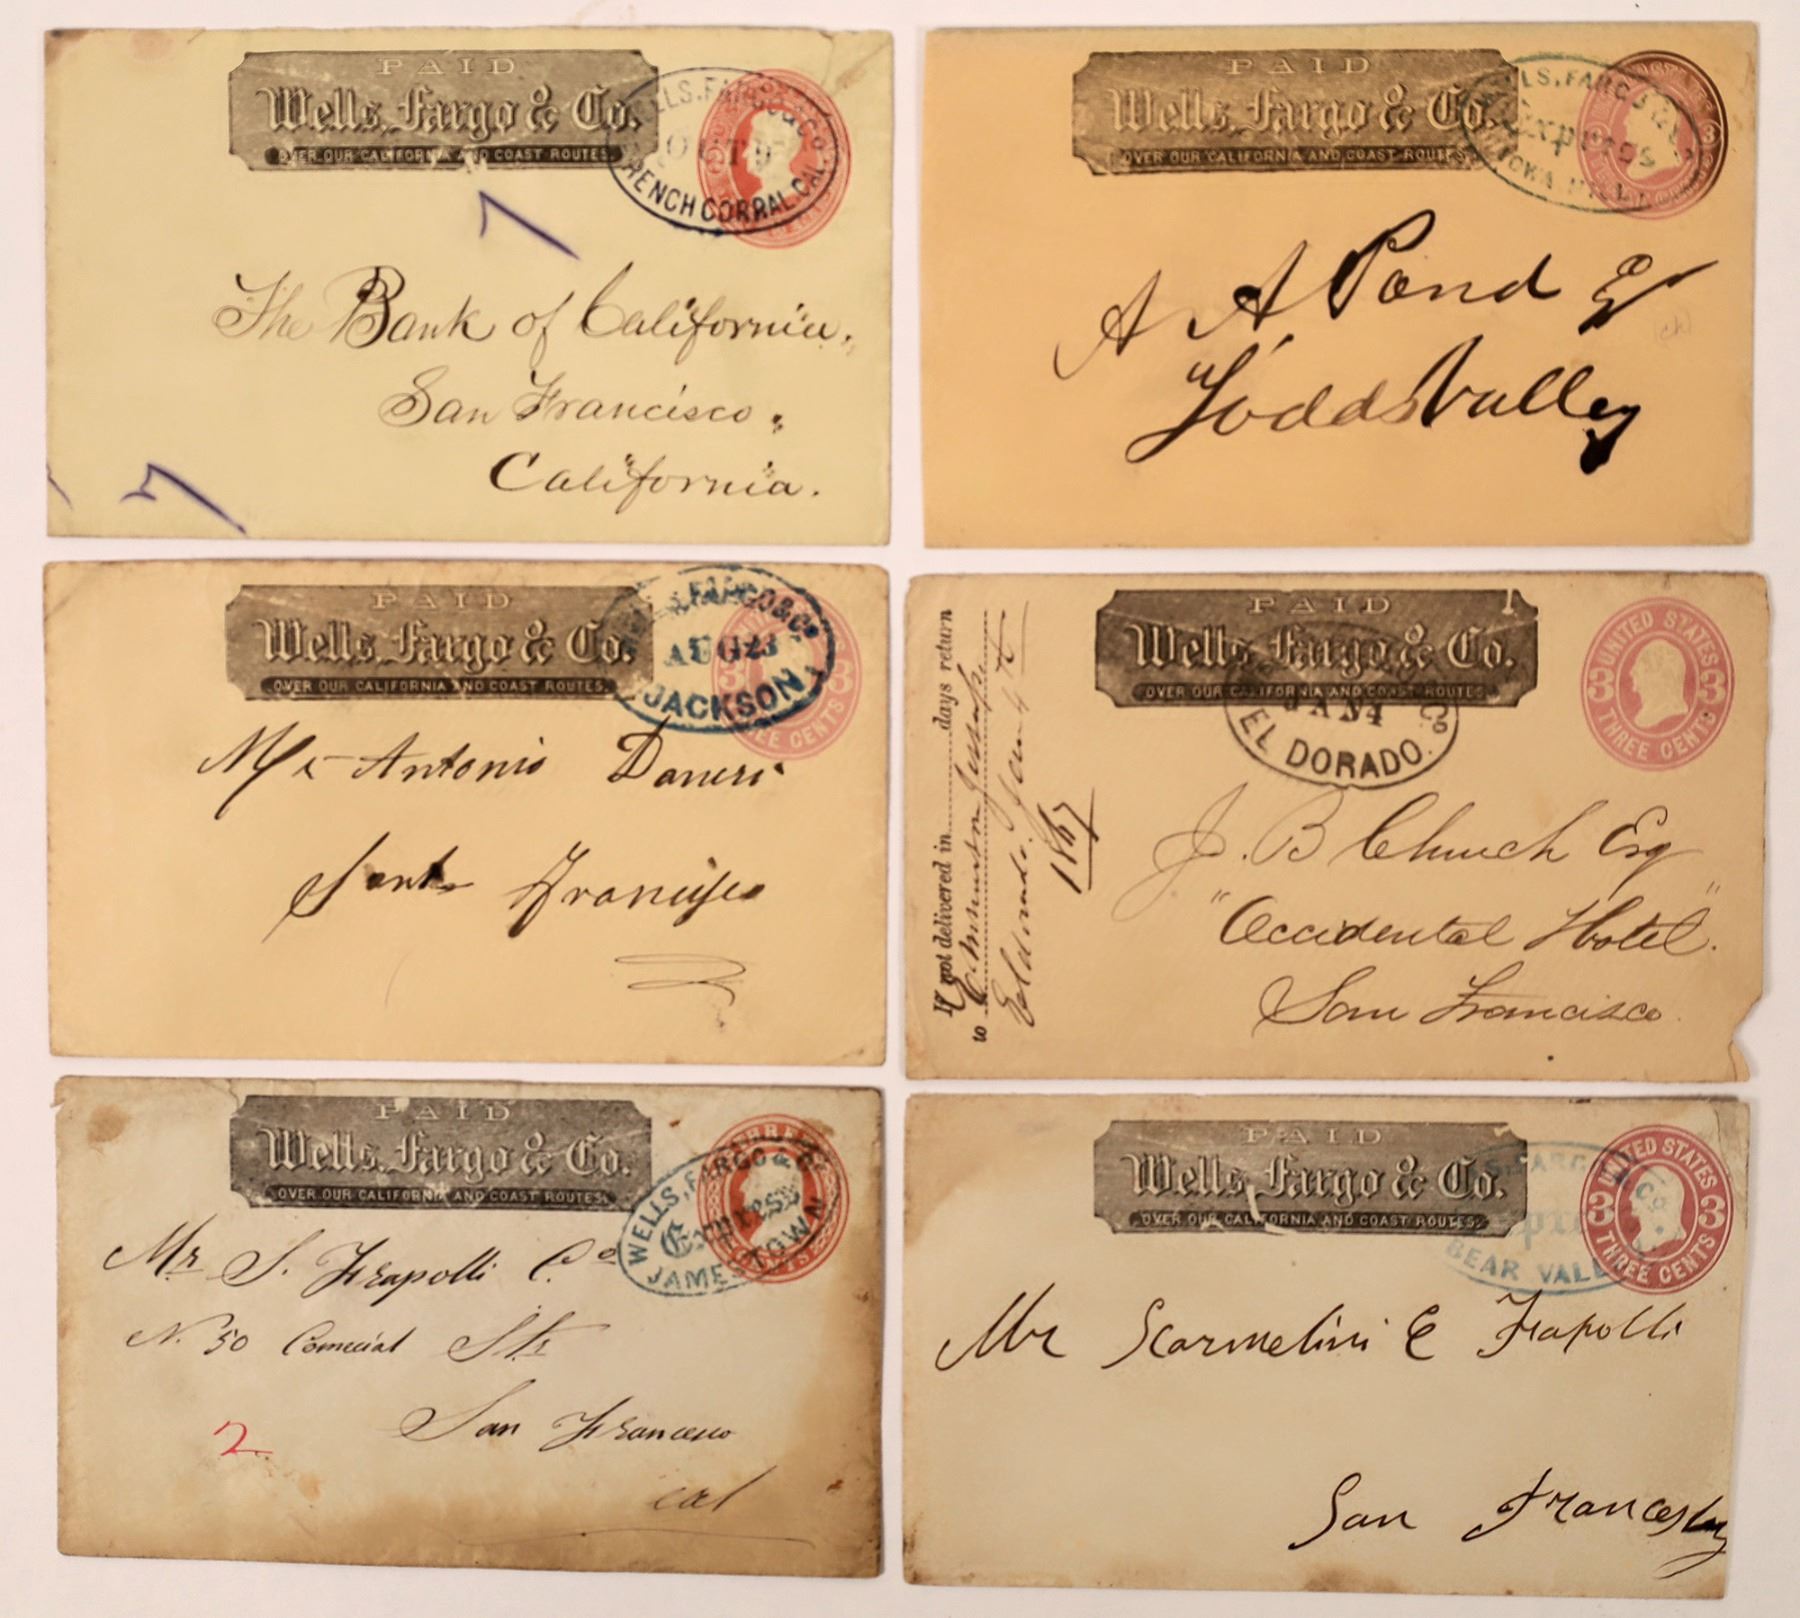 PAID
Wells, Fargo & Co.
OVER OUR CALIFORNIA AND COAST ROUTES.
WELLS, FARGO & CO.
OCT 9
FRENCH CORRAL, CAL.
The Bank of California,
San Francisco,
California.
PAID
Wells, Fargo & Co.
OVER OUR CALIFORNIA AND COAST ROUTES.
WELLS, FARGO &
Express
IOWA HILL
3
A A Pond
Todds Valley
PAID
Wells, Fargo & Co.
OVER OUR CALIFORNIA AND COAST ROUTES.
FARGO & Co
AUG 23
JACKSON
3 3
THREE CENTS
Mr Antonio Daneri
Francisco
PAID
Wells, Fargo & Co.
OVER OUR CALIFORNIA AND COAST ROUTES.
Co
JAN 4
EL DORADO.
UNITED STATES
3 3
THREE CENTS
If not delivered in days return
to
1867
J. B Church Esq
"Occidental Hotel."
San Francisco
PAID
Wells, Fargo & Co.
OVER OUR CALIFORNIA AND COAST ROUTES.
WELLS, FARGO & Co
Express
JAMESTOWN
Mr S. Frapolli Co
N. 50 Comecial Str
San Francesco
Cal
2
PAID
Wells, Fargo & Co.
OVER OUR CALIFORNIA AND COAST ROUTES.
BEAR VALLEY
UNITED STATES
3 3
THREE CENTS
Mr Scarmelini E Frapolli
San